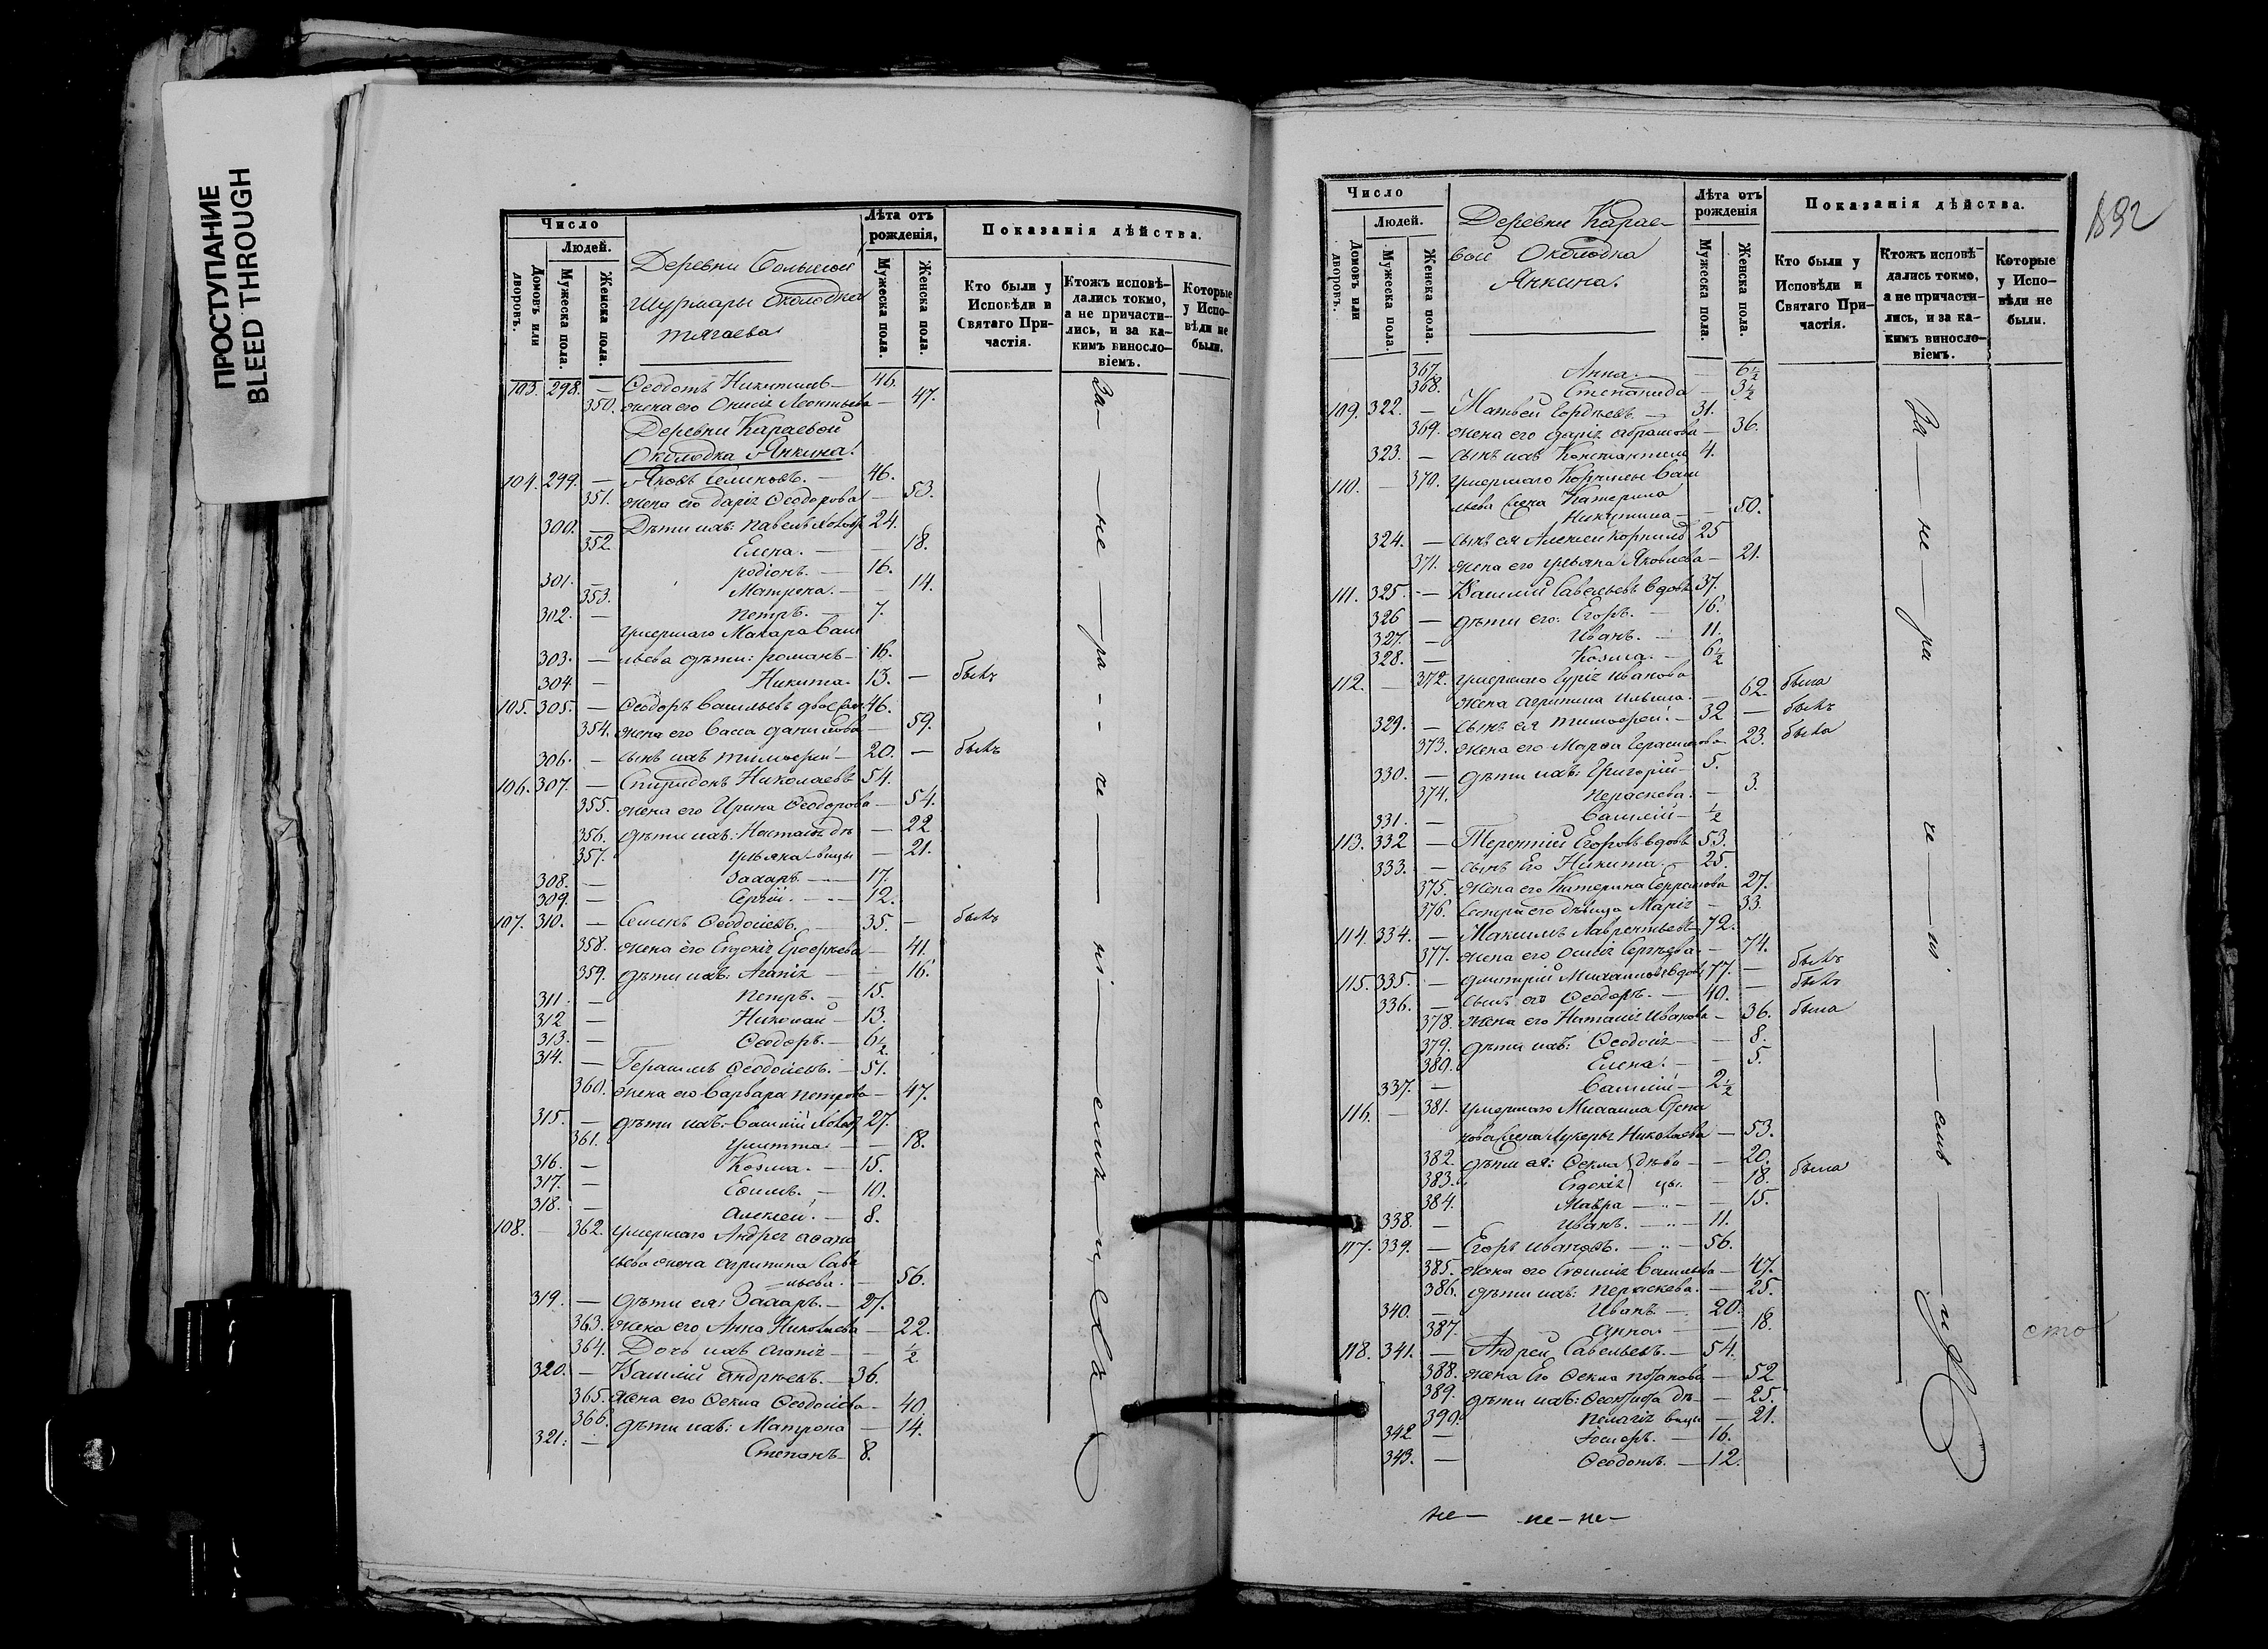 ПРОСТУПАНИЕ
BLEED THROUGH
Число
Людей.
Домовъ или дворовъ.
Мужеска пола.
Женска пола.
Деревни Большой
Шурмары Околодка
Тягаева
Лѣта отъ рожденія,
Мужеска пола.
Женска пола.
Показанія дѣйства.
Кто были у Исповѣди и Святаго Причастія.
Ктожъ исповѣдались токмо, а не причастились, и за какимъ винословіемъ.
Которые у Исповѣди не были.
103. 298. — Ѳеодотъ Никитинъ — 46.
350. жена его Онисія Леонтьева — 47.
Деревни Караевой
Околодка Янкина
104. 299. — Яковъ Семеновъ. — 46.
351. жена его Дарія Ѳеодорова — 53.
300. — Дѣти ихъ: Павелъ холос 24.
352. Елена. — 18.
301. — родіонъ. — 16.
353. Матрена. — 14.
302. — петръ. — 7.
Умершаго Макара Васи
303. — льева дѣти: романъ — 16.
304 — Никита. 13. — былъ
105. 305. — Ѳеодоръ Васильевъ 46.
354. жена его Васса данилова — 59.
306. — сынъ ихъ тимоѳей — 20. — былъ
106. 307. — Спиридонъ Николаевъ 54.
355. жена его Ирина Ѳеодорова — 54.
356. дѣти ихъ: Настасія дѣ — 22
357. ульяна вицы — 21.
308. — Захаръ. — 17.
309. — Сергій. — 12.
107. 310. — Семенъ Ѳеодосіевъ. 35. — былъ
358. жена его Евдокія Ероѳеева — 41.
359. дѣти ихъ: Агапія — 16.
311. — петръ. — 15.
312 — Николай — 13.
313. — Ѳеодоръ. — 6½
314. — Герасимъ Ѳеодосіевъ. — 51.
360. жена его Варвара петрова — 47.
315. — дѣти ихъ: Василій холос 27.
361. улитта — 18.
316. — Козма. — 15.
317. — Еѳимъ. — 10.
318. — Алексей. — 8.
108. — 362. умершаго Андрея аѳана
сьева жена агрипина Саве
льева. — 56.
319. — дѣти ея: Захаръ. — 27.
363. жена его Анна Николаева — 22.
364. Дочь ихъ Агапія — ½
320. — Василій андреевъ. — 36.
365. жена его Ѳекла Ѳеодосіева — 40
366. дѣти ихъ: Матрона — 14.
321. — Степанъ — 8.
За — не — ра — че — ні — емъ
Число
Людей.
Домовъ или дворовъ.
Мужеска пола.
Женска пола.
Деревни Карае-
вой Околодка
Янкина.
Лѣта отъ рожденія
Мужеска пола.
Женска пола.
Показанія дѣйства.
Кто были у Исповѣди и Святаго Причастія.
Ктожъ исповѣдались токмо, а не причастились, и за какимъ винословіемъ.
Которые у Исповѣди не были.
892
367. Анна. — 6½
368. Степанида — 3½
109. 322. — Матвей Сергѣевъ — 31.
369. жена его дарія абрамова — 36.
323. — сынъ ихъ Константинъ 4.
110. — 370. умершаго Корнилы Васи
льева жена Катерина
Никитина — 50.
324. — сынъ ея Алексей корнилов 25
371. жена его ульяна Яковлева — 21.
111. 325. — Василій Савельевъ вдовъ 37.
326 — дѣти его: Егоръ. — 16.
327. — Иванъ. — 11.
328. — Козма. — 6½
112. — 372. умершаго Гурія иванова
жена агрипина ильина. — 62 была
329. — сынъ ея тимоѳей. — 32 — былъ
373. жена его Марѳа Герасимова 23. была
330. — дѣти ихъ: Григорій — 5.
374. пераскева. — 3.
331. — Василій — ½
113. 332 — Терентій Егоровъ вдовъ 53.
333. — сынъ Его Никита. — 25.
375. жена его Катерина Ефремова 27.
376. сестра его дѣвица Марія — 33.
114. 334. — Максимъ Лаврентьевъ — 72.
377. жена его Онисія Сергѣева. — 74.
115. 335. — дмитрій Михаиловъ вдовъ 77. — былъ
336. — сынъ его Ѳеодоръ. — 40. — былъ
378. жена его Наталія иванова — 36. была
379. дѣти ихъ: Ѳеодосія — 8.
380. Елена. — 5.
337. — Василій — 2½
116. — 381. умершаго Михаила Степа
нова жена Лукерья Николаева — 53.
382. дѣти ея: Ѳекла дѣви — 20.
383. Евдокія цы. — 18. была
384. Мавра — 15.
338. — Иванъ. — 11.
117. 339. — Егоръ ивановъ. — 56.
385. жена его Евѳимія Васильева — 47.
386. дѣти ихъ: пераскева. — 25.
340. — Иванъ — 20.
387. Анна. — 18.
118. 341. — Андрей Савельевъ. — 54.
388. жена Его Ѳекла потапова — 52
389. дѣти ихъ: дѣ — 25.
390. пелагія вицы — 21.
342 — 16.
343. — Ѳеодотъ. — 12.
За — не — ра — че — ні — емъ
сто
не — не — не —